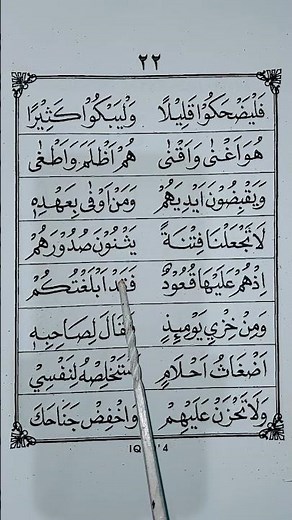 ٢٢
فَلْيَضْحَكُوْا قَلِيْلًا وَلْيَبْكُوْا كَثِيْرًا
هُوَ اَغْنٰى وَاَقْنٰى هُمْ اَظْلَمَ وَاَطْغٰى
وَيَقْبِضُوْنَ اَيْدِيَهُمْ وَمَنْ اَوْفٰى بِعَهْدِهٖ
لَا تَجْعَلْنَا فِتْنَةً يَثْنُوْنَ صُدُوْرَهُمْ
اِذْهُمْ عَلَيْهَا قُعُوْدٌ اَبْلَغْتُكُمْ
وَمِنْ خِزْيِ يَوْمِئِذٍ فَقَالَ لِصَاحِبِهٖ
اَضْغَاثُ اَحْلَامٍ لِنَفْسِيْ
وَلَا تَحْزَنْ عَلَيْهِمْ وَاخْفِضْ جَنَاحَكَ